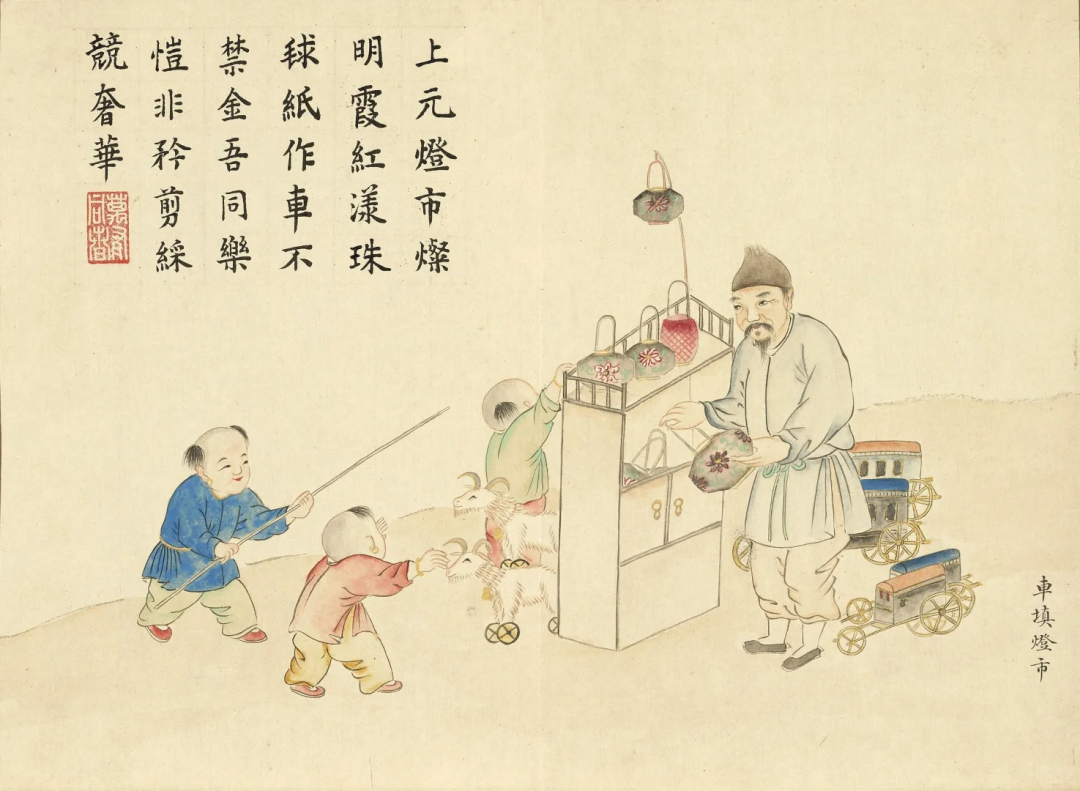 上元燈市燦
明霞紅漾珠
毬紙作車不
禁金吾同樂
愷非矜剪綵
競奢華
車填燈市